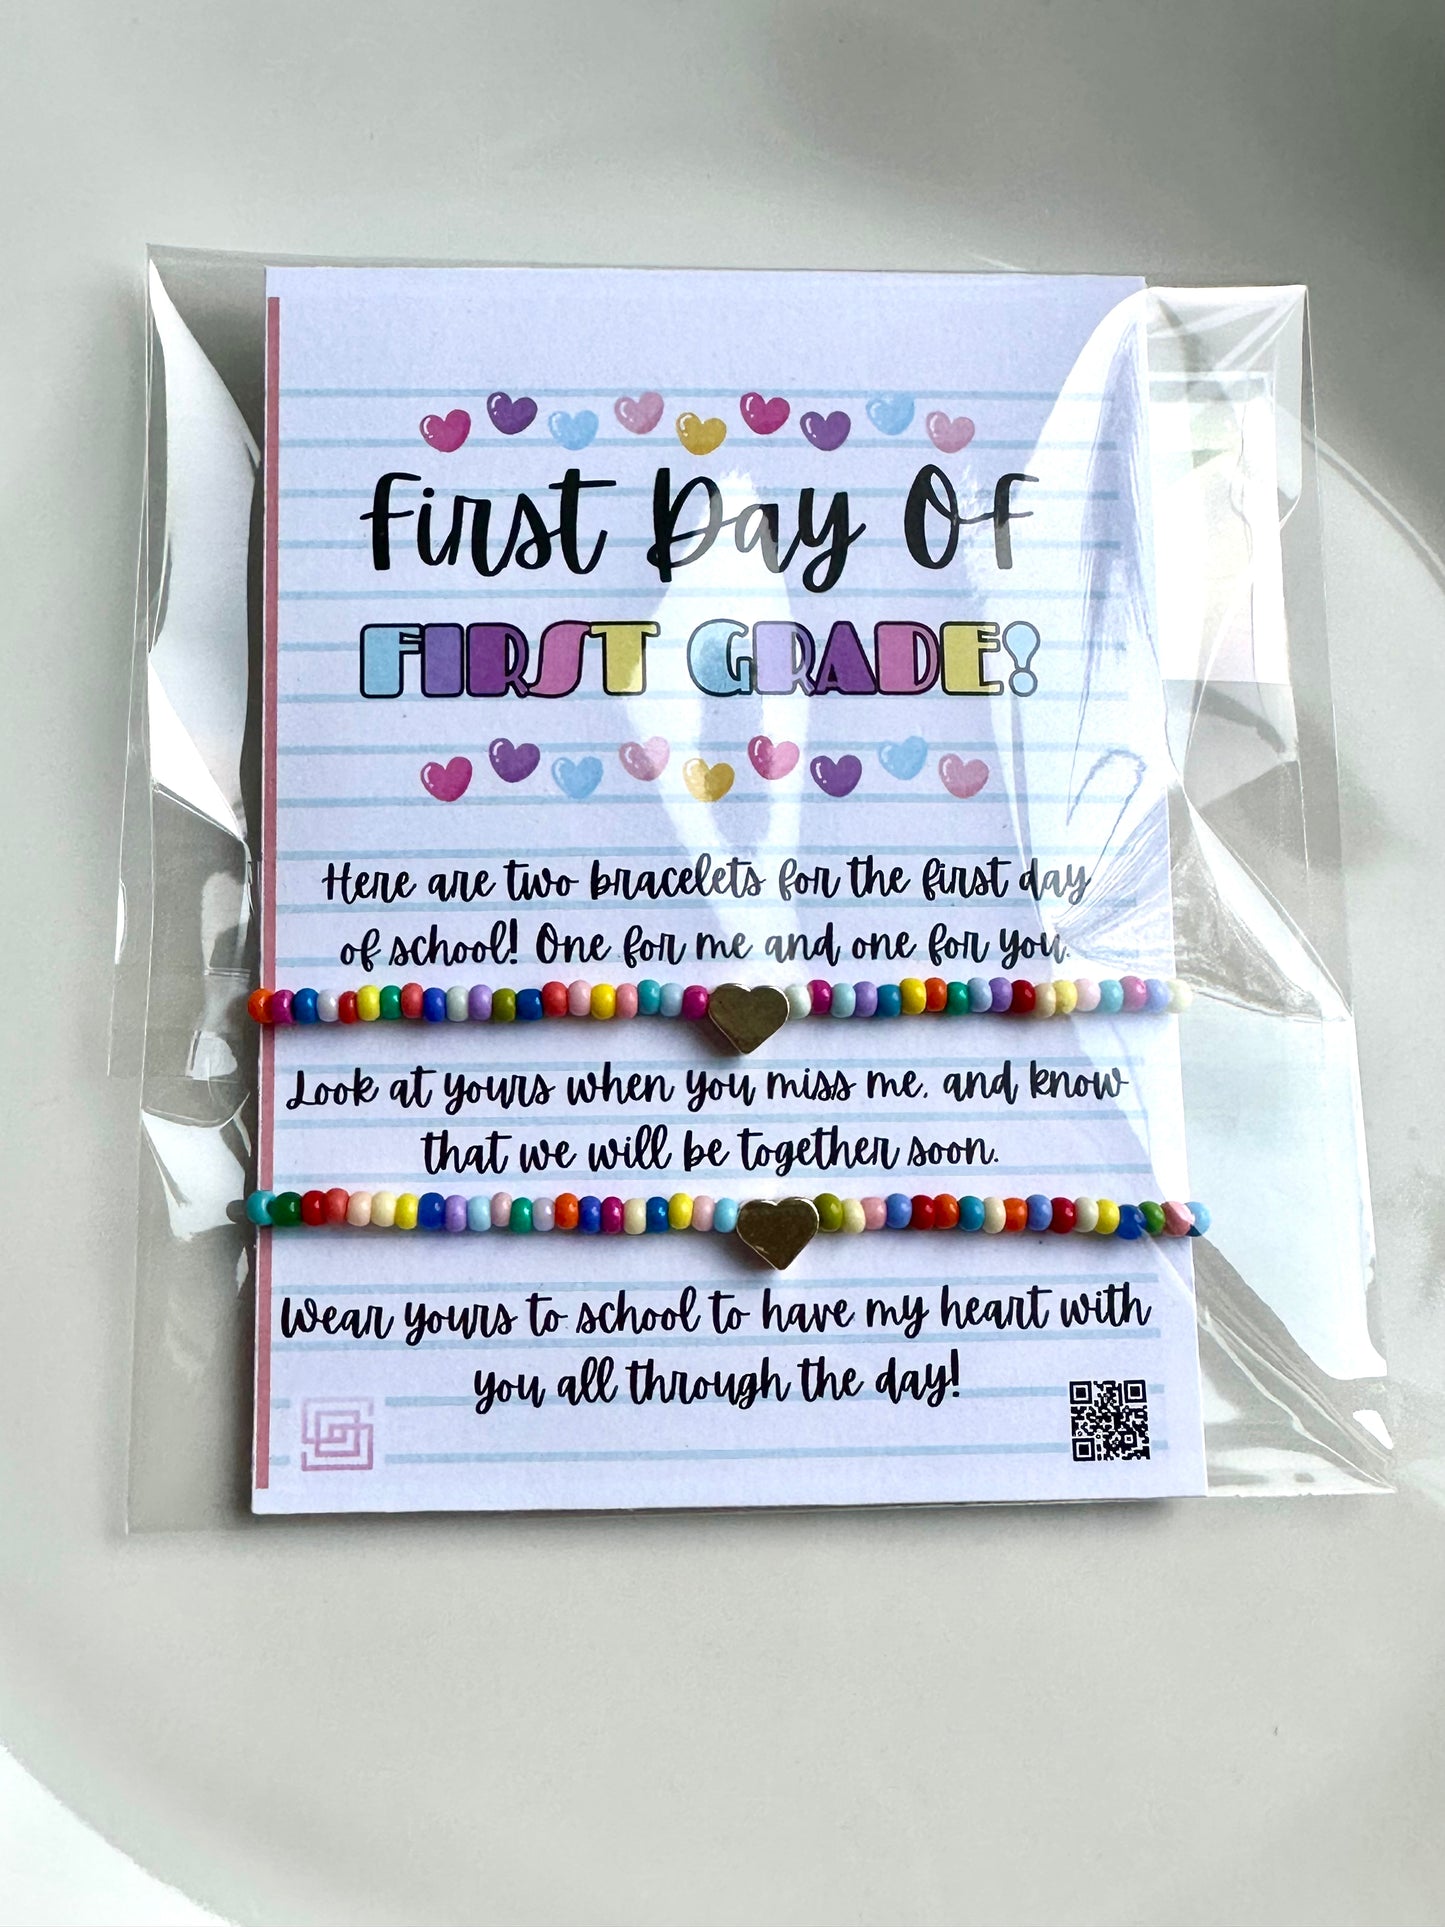 First Day Of
FIRST GRADE!
Here are two bracelets for the first day
of school! One for me and one for you.
Look at yours when you miss me, and know
that we will be together soon.
Wear yours to school to have my heart with
you all through the day!